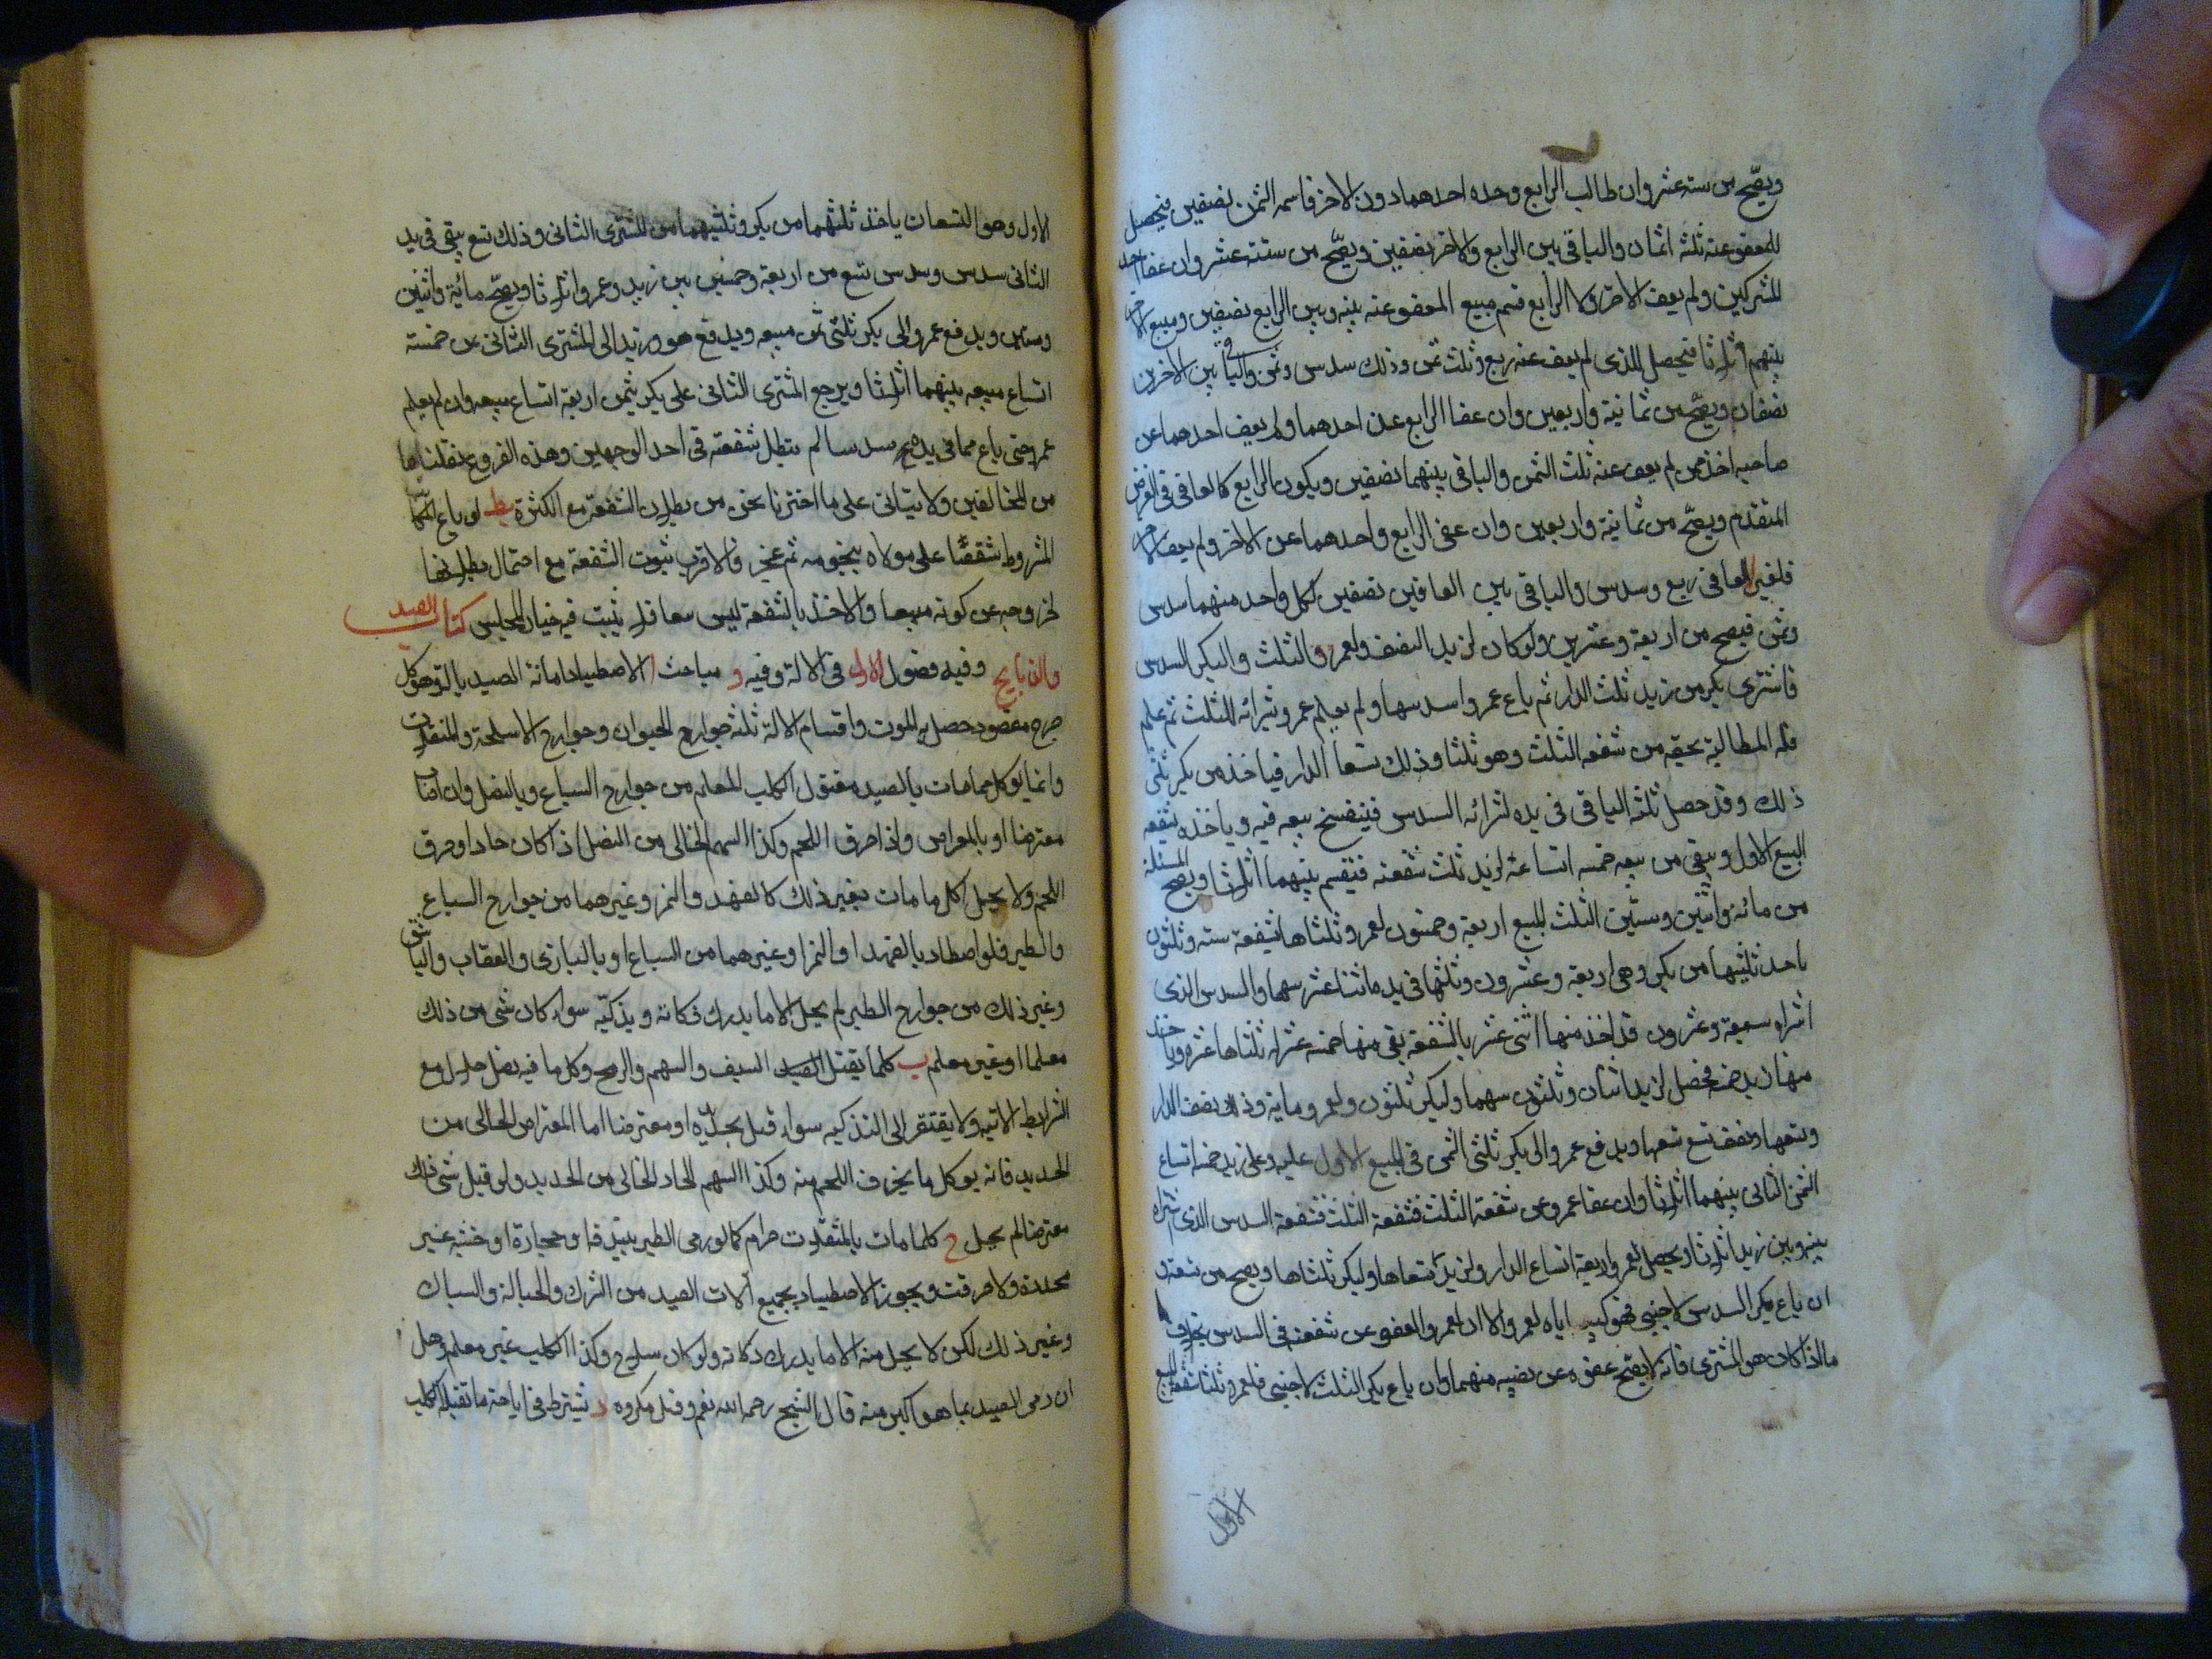 ويصح من ستة عشر وان طالب الرابع وحده احدهما دون الاخر قاسمه الثمن نصفين فيحصل
للمعفو عنه ثلثه اثمان والباقي بين الرابع والاخر نصفين ويصح من ستة عشر وان عفا احد
المشتركين ولم يعف الاخر ولا الرابع قسم مبيع المعفو عنه بينه وبين الرابع نصفين ومبيع الاخر
بينهم اثلاثا فيحصل للذي لم يعف عنه ربع وثلث ثمن وذلك سدس وثمن والباقي بين الاخرين
نصفان ويصح من ثمانية واربعين وان عفا الرابع عن احدهما ولم يعف احدهما عن
صاحبه اخذ ممن لم يعف عنه ثلث الثمن والباقي بينهما نصفين ويكون الرابع كالعافي في الفرض
المتقدم ويصح من ثمانية واربعين وان عفى الرابع واحدهما عن الاخر ولم يعف الاخر
فلغير العافي ربع وسدس والباقي بين العافين نصفين لكل واحد منهما سدس
وثمن فيصح من اربعة وعشرين ولو كان لزيد النصف ولعمرو الثلث ولبكر السدس
فاشترى بكر من زيد ثلث الدار ثم باع عمروا سدسها ولم يعلم عمرو بشرائه للثلث ثم علم
فله المطالبة بحقه من شفعه الثلث وهو ثلثا وذلك تسعا الدار فياخذ من بكر ثلثي
ذلك وقد حصل ثلثه الباقي في يده لشرائه السدس فينفسخ بيعه فيه وياخذه بشفعه
البيع الاول ويبقى من بيعه خمسه اتساعه لزيد ثلث شفعته فتقسم بينهما اثلاثا ويصح المسئلة
من مائه واثنين وستين الثلث المبيع اربعة وخمسون لعمرو ثلثاها بشفعة سته وثلثون
ياخذ ثلثيها من بكر وهي اربعة وعشرون وثلثها في يده اثنا عشر سهما والسدس الذي
اشتراه سبعة وعشرون قد اخذ منها اثنى عشر بالشفعة بقي منها خمسة عشر له ثلثاها عشرة وياخذ
منها زيد خمسة فحصل لزيد اثنان وثلثون سهما ولبكر ثلثون ولعمرو مائة وذلك نصف الدار
وتسعها ونصف تسع تسعها ويدفع عمرو الى بكر ثلثي الثمن في البيع الاول عليه وعلى زيد خمسه اتساع
الثمن الثاني بينهما اثلاثا وان عفا عمرو عن شفعة الثلث فشفعة السدس الذي اشتراه
بينه وبين زيد اثلاثا ويحصل لعمرو اربعة اتساع الدار ولزيد تسعاها ولبكر ثلثاها ويصح من تسعة و
ان باع بكر السدس لاجنبي فهو كبيعه اياه لعمرو الا ان لعمرو العفو عن شفعته في السدس بخلاف
ما اذا كان هو المشتري فانه لا يصح عفوه عن نصيبه منهما وان باع بكر الثلث لاجنبي فلعمرو ثلثا شفعة المبيع
الاول
الاول وهو التسعان ياخذ ثلثهما من بكر وثلثيهما من المشتري الثاني وذلك تسع يبقى في يد
الثاني سدس وسدس تسع من اربعة وخمسين بين زيد وعمرو اثلاثا ويصح مائة واثنين
وستين ويدفع عمرو الى بكر ثلثي ثمن مبيعه ويدفع هو وزيد الى المشتري الثاني ثمن خمسة
اتساع مبيعه بينهما اثلاثا ويرجع المشتري الثاني على بكر بثمن اربعة اتساع مبيعه وان لم يعلم
عمرو حتى باع مما في يده سدسا لم تبطل شفعته في احد الوجهين وهذه الفروع نقلناها
من المخالفين ولا يتاتى على ما اخترنا نحن من بطلان الشفعة مع الكثرة يط لو باع المكاتب
المشروط شقصا على مولاه بنجومه ثم عجز فالاقرب ثبوت الشفعة مع احتمال بطلانها
لخروجه عن كونه مبيعا والاخذ بالشفعة ليس معاقد يثبت فيه خيار المجلس كتاب الصيد
والذبايح وفيه فصول الاول في الالة وفيه و مباحث ا الاصطياد اما ثه الصيد بالة وهو كل
جرح مقصود حصل به الموت واقسام الالة ثلثه جوارح الحيوان وجوارح الاسلحة والمثقلات
وانما يوكل مما مات بالصيد مقتول الكلب المعلم من جوارح السباع وبالنصل وان اصاب
معترضا او بالمعراض واذا خرق اللحم وكذا السهم الخالي من النصل اذا كان حادا وخرق
اللحم ولا يحل اكل ما مات بغير ذلك كالفهد والنمر وغيرهما من جوارح السباع
والطير فلو اصطاد بالفهد او النمر او غيرهما من السباع او بالبازي والعقاب والباشق
وغير ذلك من جوارح الطير لم يحل الا ما يدرك ذكاته ويذكيه سواء كان شئ من ذلك
معلما او غير معلم ب كلما يقتل الصيد السيف والسهم والرمح وكل ما فيه نصل حلال مع
الشرايط الاتيه ولا يفتقر الى التذكيه سواء قتل بحده او معترضا اما المعراض الخالي من
الحديد فانه يوكل ما يخرق اللحم منه وكذا السهم الحاد الخالي من الحديد ولو قتل شئ ذلك
معترضا لم يحل ج كلما مات بالمثقلات حرام كما لو رمى الطير ببندقة او حجارة او خشبه غير
محددة ولا خرقت ويجوز الاصطياد بجميع الات الصيد من الشرك والحبالة والشباك
وغير ذلك لكن لا يحل منه الا ما يدرك ذكاته ولو كان سلاح وكذا الكلب غير معلم وحل
ان رمى الصيد بما هو اكبر منه قال الشيخ رحمه الله نعم وقيل مكروه د يشترط في اباحة ما تقتله الكلب